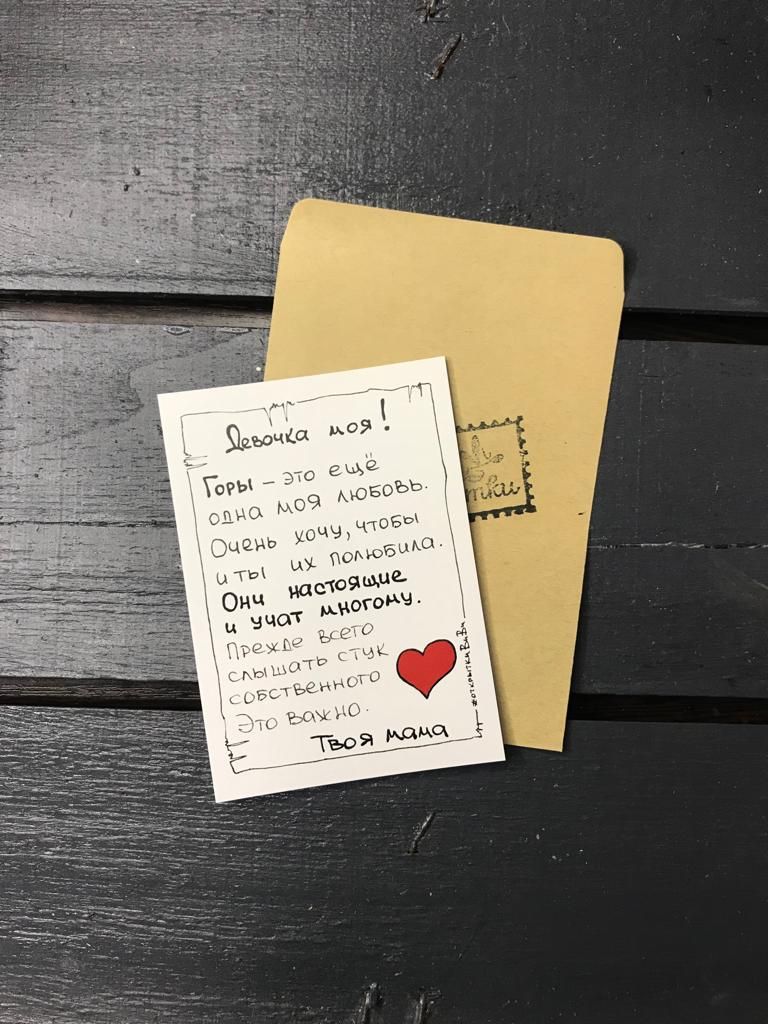 Девочка моя!
Горы – это ещё
одна моя любовь.
Очень хочу, чтобы
и ты их полюбила.
Они настоящие
и учат многому.
Прежде всего
слышать стук
собственного
Это важно.
Твоя мама
#открыткиВиВи